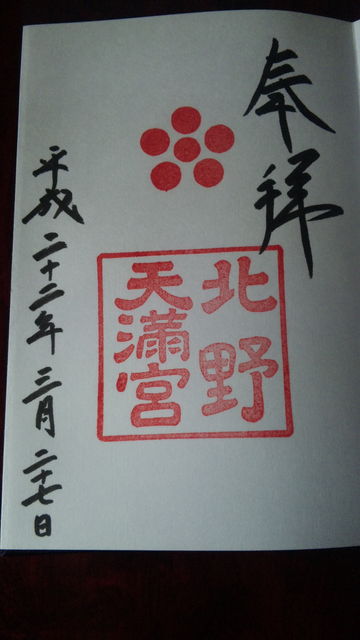 奉拝
北野
天満宮
平成二十二年三月二十七日